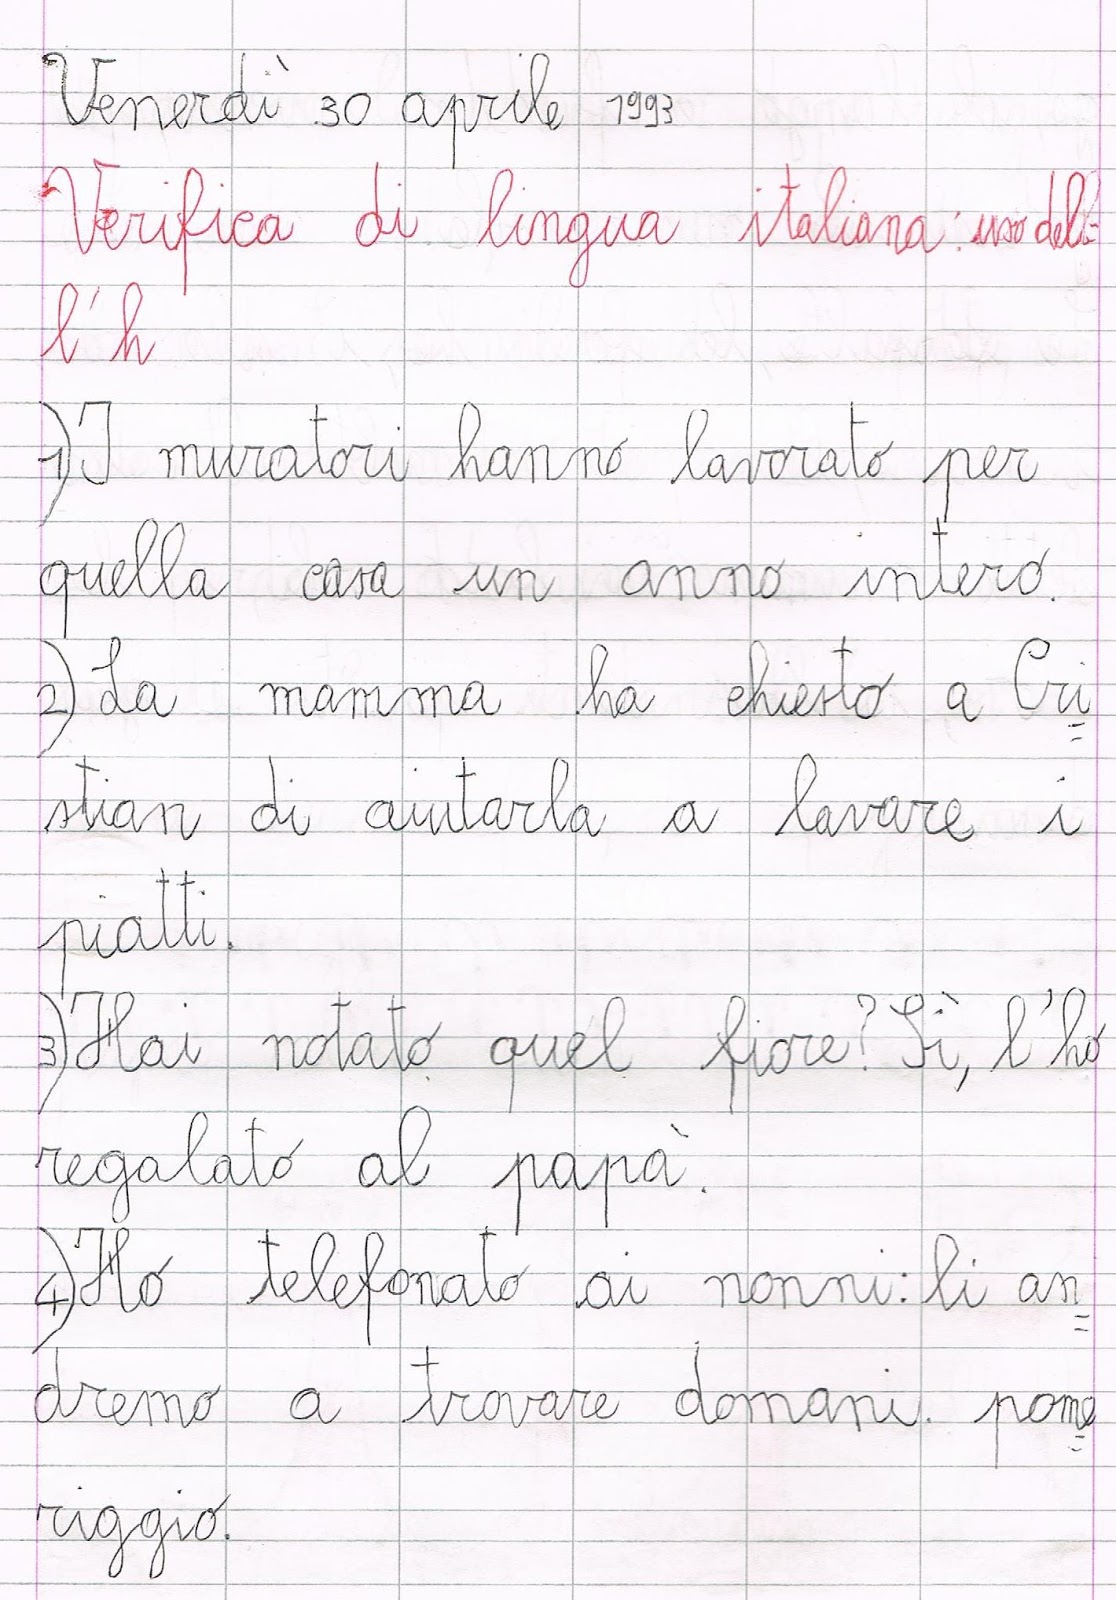 Venerdì 30 aprile 1993
Verifica di lingua italiana: uso del=
l'h
1) I muratori hanno lavorato per
quella casa un anno intero.
2) La mamma ha chiesto a Cri=
stian di aiutarla a lavare i
piatti.
3) Hai notato quel fiore? Sì, l'ho
regalato al papà.
4) Ho telefonato ai nonni: li an=
dremo a trovare domani. pome=
riggio.